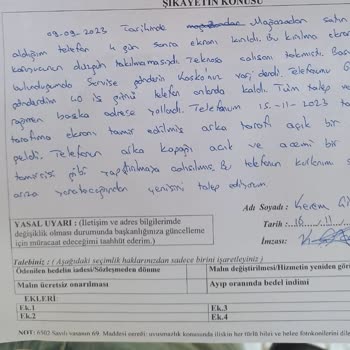 ŞİKAYETİN KONUSU
09.09.2023 Tarihinde Mağazadan satın
aldığım telefon 4 gün sonra ekranı kırıldı. Bu kırılma ekran
koruyucunun düzgün takılmamasıydı. Teknosa çalışanı takmıştı. Baş
bulunduğumda Servise gönderin Kasko'nuz var dendi. Telefonumu
gönderdim 40 iş günü telefon onlarda kaldı. Tüm talep ve
rağmen başka adrese yolladı. Telefonum 15-11-2023 ta
tarafıma ekranı tamir edilmiş arka tarafı açık bir
geldi. Telefonun arka kapağı açık ve acemi bir
tamircisi gibi yapıştırılmaya çalışılmış. Bu telefonun kullanımı
arıza yaratacağından yenisini talep ediyorum.
Adı Soyadı : Kerem
YASAL UYARI : (İletişim ve adres bilgilerimde
değişiklik olması durumunda başkanlığınıza güncelleme
için müracaat edeceğimi taahhüt ederim.)
Tarih : 16/11/
İmzası:
Talebiniz : ( Aşağıdaki seçimlik haklarınızdan sadece birini işaretleyiniz )
Ödenilen bedelin iadesi/Sözleşmeden dönme
Malın değiştirilmesi/Hizmetin yeniden gör
Malın ücretsiz onarılması
Ayıp oranında bedel indimi
EKLERİ:
Ek.1
Ek.3
Ek.2
Ek.4
NOT: 6502 Sayılı yasanın 69. Maddesi gereği: uyuşmazlık konusuna ilişkin her türlü bilgi ve belge fotokopilerini dile